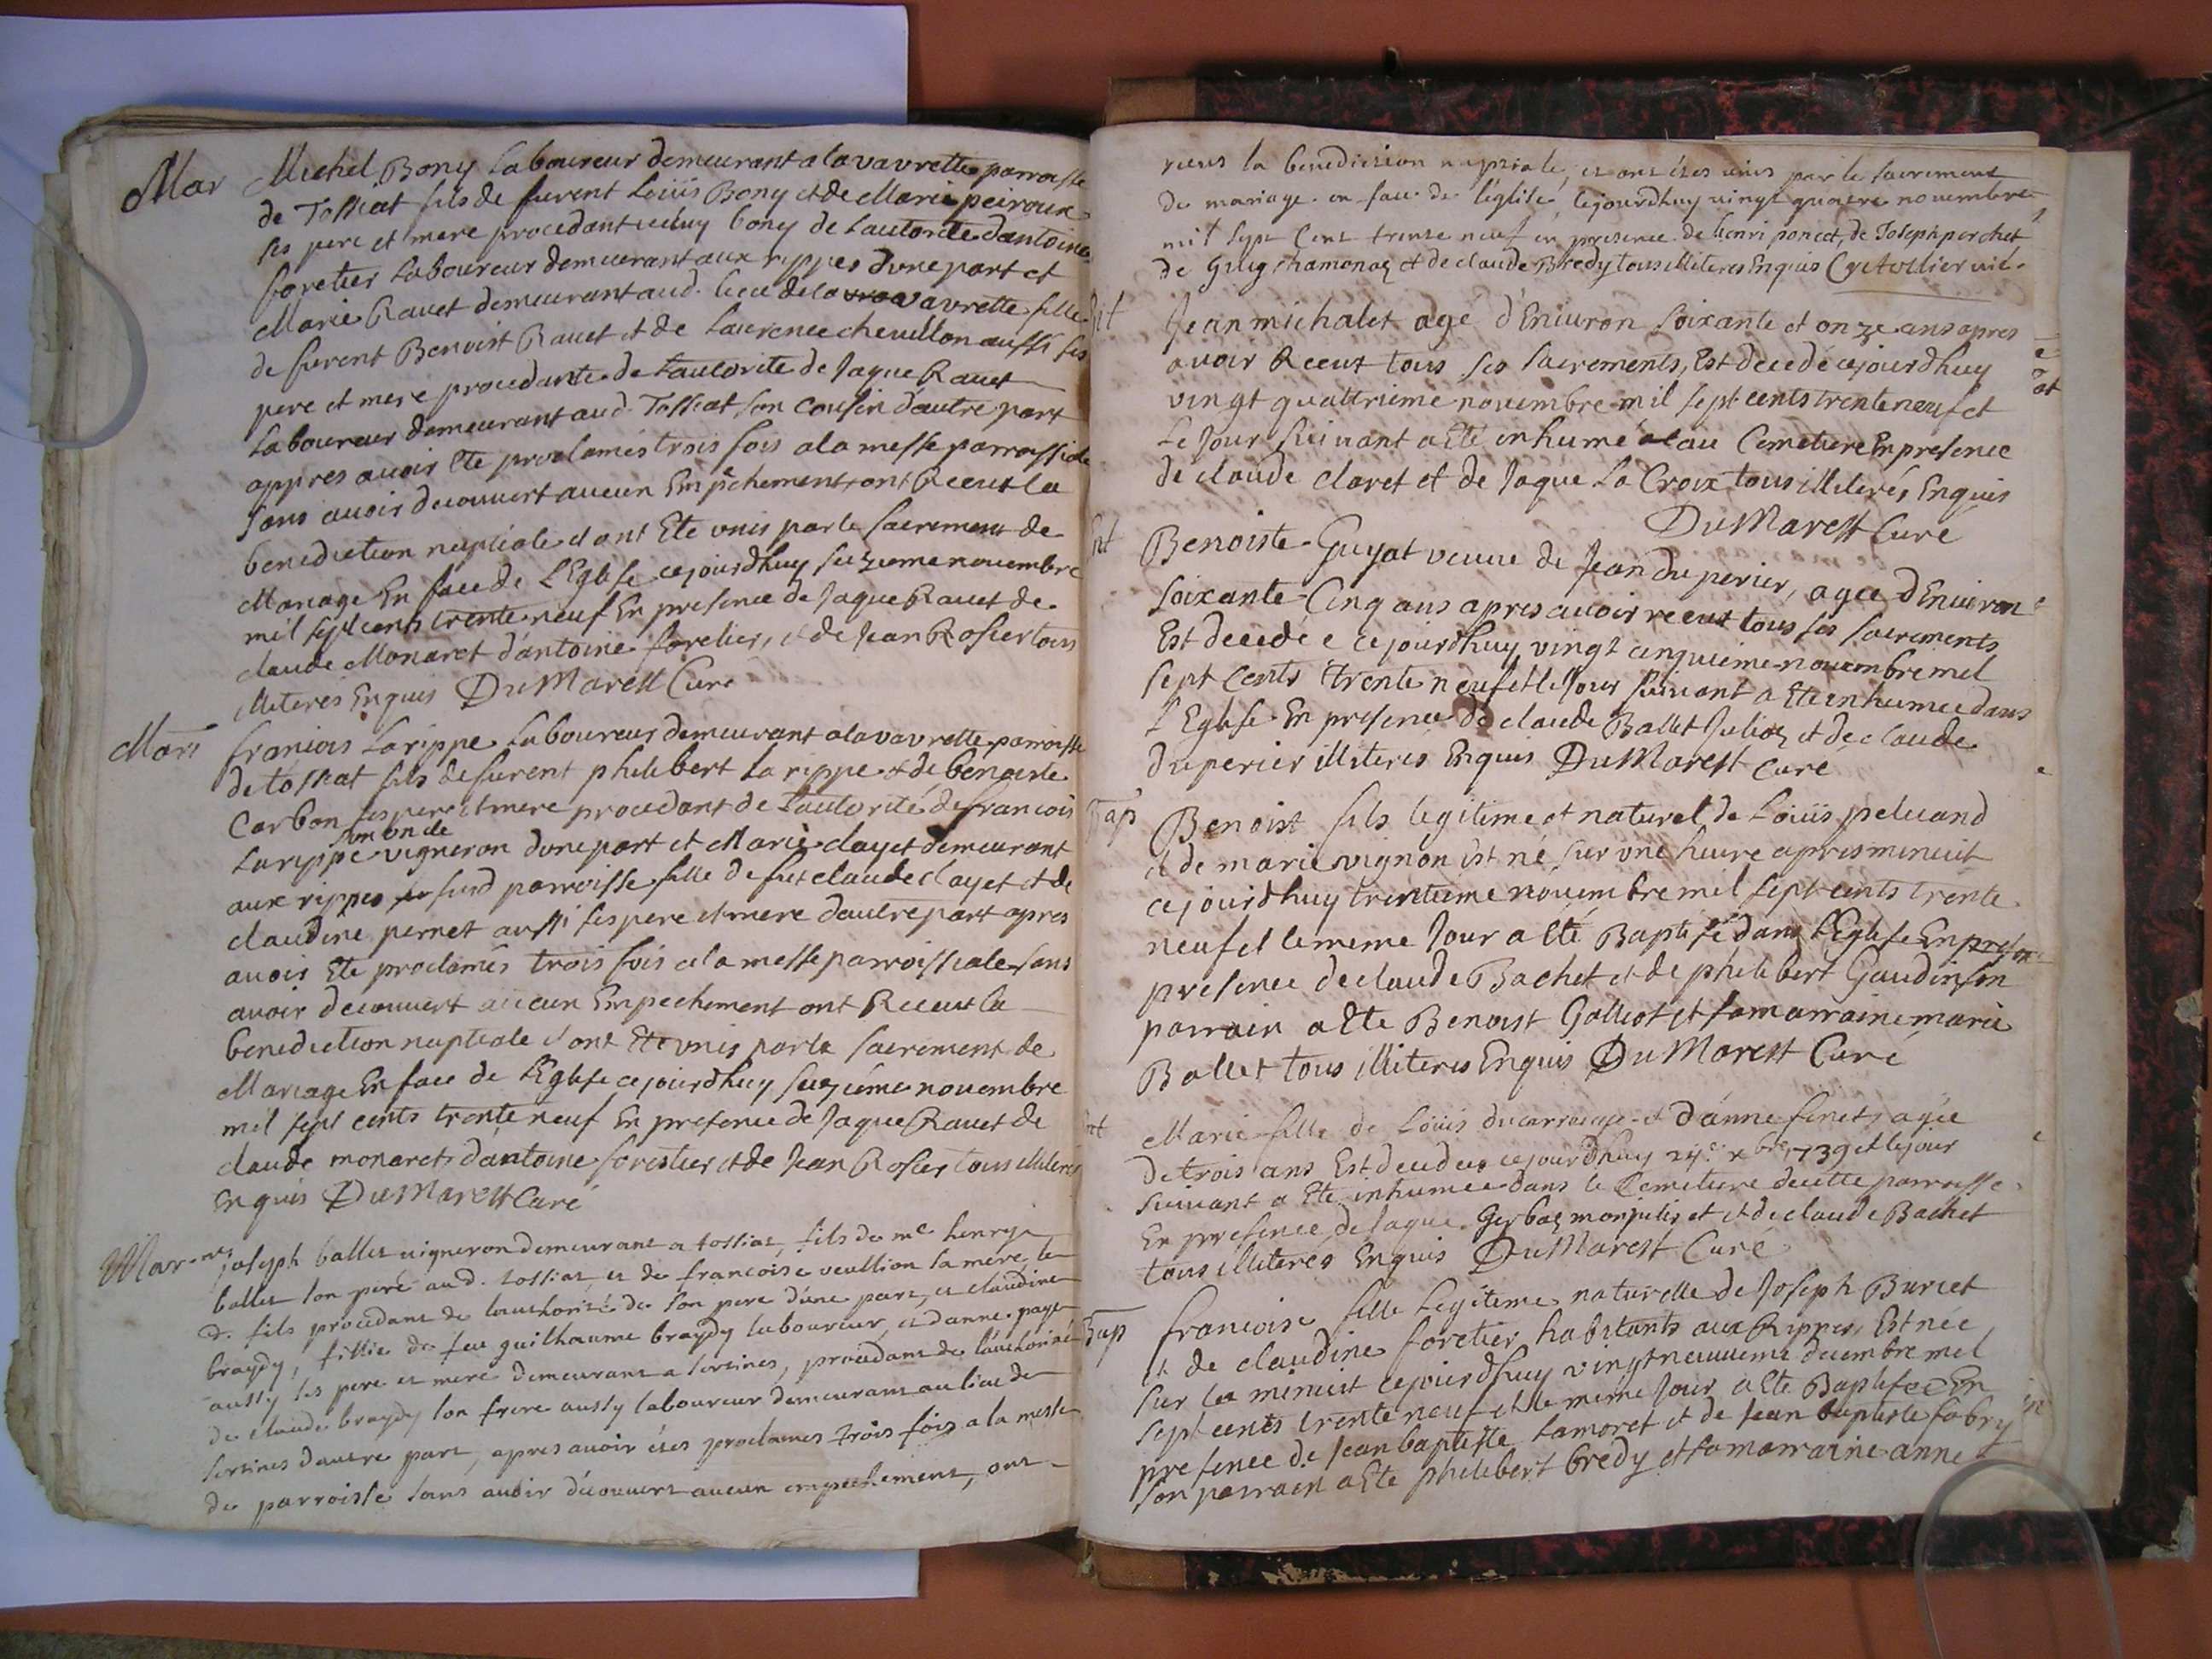 Mar Michel Bony Laboureur demeurant a la vavrette parroisse
de Tossiat fils de furent Loüis Bony et de Marie peiroux
ses pere et mere procedant iceluy bony de Lautorite dantoine
foretier Laboureur demeurant aux rippes dune part et
Marie Ravet demeurant aud. lieu dela vavrette fille
de furent Benoist Ravet et de Laurence chevillon aussi ses
pere et mere procedante de Lautorite de Jaque Ravet
Laboureur demeurant aud. Tossiat son cousin dautre part
appres avoir Ete proclamés trois fois ala messe parroissiale
sans avoir decouvert aucun Empéchement, ont Receut la
benediction nuptiale et ont Ete unis par le sacrement de
Mariage En face de L'Eglise cejourdhuy seizieme novembre
mil sept cents trente neuf En presence de Jaque Ravet de
claude Monaret d'antoine foretier, et de Jean Rosier tous
illiterés Enquis DuMarest Curé
Mari francois Larippe Laboureur demeurant ala vavrette parroisse
de tossiat fils de furent philibert Larippe et de benoiste
Carbon ses pere et mere procedant de Lautorité de francois
son oncle
Larippe vigneron dune part et Marie clayet demeurant
aux rippes susd parroisse fille de fut claude clayet et de
claudine pernet aussi ses pere et mere dautre part apres
avoir Ete proclamés trois fois ala messe parroissiale sans
avoir decouvert aucun Empechement ont Receut la
benediction nuptiale et ont Ete unis par le sacrement de
Mariage En face de L'Eglise cejourdhuy seizième novembre
mil sept cents trente neuf En presence de Jaque Ravet de
claude monaret, d'antoine forestier et de Jean Rosier tous illiteres
Enquis DuMarest Curé
Mar joseph ballet vigneron demeurant a tossiat, fils de me henry
ballet son peré aud. tossiat, et de francoise veullion sa mere, le
d. fils procedant de lauthorité de son pere d'une part, et claudine
braydy, fillie de feu guilhaume braydy laboureur, et danne page
aussy ses pere et mere demeurant a sertines, procedant de l'authorité
de claude braydy son frere aussy laboureur demeurant au lieu de
sertines dautre part, apres avoir étes proclames trois fois a la messe
de parroisse sans avoir découvert aucun empechement, ont
receus la benediction nuptiale, et ont étes unis par le sacrement
de mariage en face de l'église, cejourdhuy vingt quatre novembre
mil sept cent trente neuf en presence de henri poncet, de Joseph perchet
de Guig chamonaz et de claude Bredy tous illiteres Enquis
Jean michalet agé d'Environ soixante et onze ans apres
avoir Receut tous ses sacrements, Est decedé cejourdhuy
vingt quattrieme novembre mil sept cents trente neuf et
Le Jour suivant a Eté inhumé au Cemetiere En presence
de claude claret et de Jaque La Croix tous illiterés Enquis
DuMarest Curé
Benoiste Guyot veuve de Jean duperier, agee d'Environ
soixante Cinq ans apres avoir receut tous ses sacrements
Est decedée cejourdhuy vingt cinquieme novembre mil
sept cents trente neuf et le Jour suivant a Ete inhumee dans
L'Eglise En presence de claude Ballet Julioz et de claude
duperier illiteres Enquis DuMarest curé
Bap Benoist fils legitime et naturel de Loüis peluand
et de marie vignon est né sur une heure apres minuit
cejourdhuy trentieme novembre mil sept cents trente
neuf et le meme Jour a Eté Baptisé dans L'Eglise En presen
presence de claude Bachet et de philibert Gaudin son
parrain a Ete Benoist Galliot et sa marraine marie
Ballet tous illiteres Enquis DuMarest Curé
Marie fille de Loüis ducarrouge et d'anne finet, agée
de trois ans Est decedee cejourdhuy 24e xbre 1739 et le jour
suivant a Ete inhumee dans le Cemetiere decette parroisse
En presence de Jaque Gerbaz et de claude Bachet
tous illiterés Enquis DuMarest Curé
Bap francoise fille Legitime naturelle de Joseph Buriet
et de claudine foretier habitants aux Rippes, Est née
sur la minuit cejourdhuy vingt neuvieme decembre mil
sept cents trente neuf et le meme Jour a Ete Baptisee En
presence de Jean baptiste Lamoret et de Jean baptiste fabry
son parrain a Ete philibert bredy et sa marraine anne